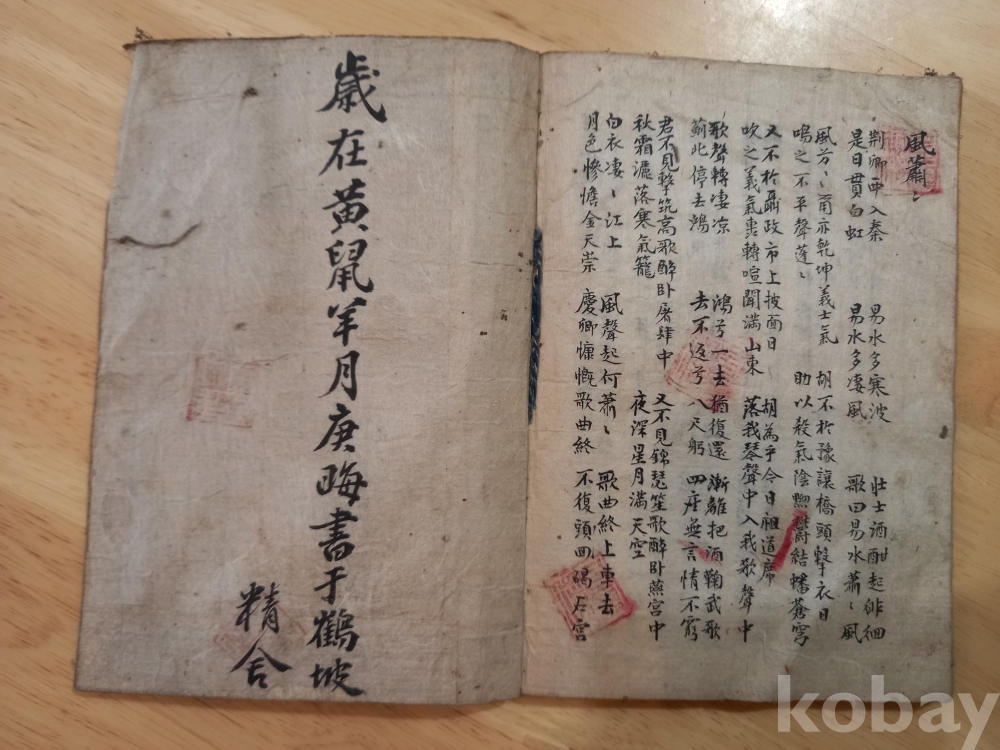 風蕭〻
荆卿西入秦 易水多寒波 壯士酒酣起徘徊
是日貫白虹 易水多凄風 歌曰易水蕭〻風
風兮〻甬亦乾坤義士氣 胡不於豫讓橋頭擊衣日
鳴之不平聲蓬〻 助以殺氣陰黑欝結蟠蒼穹
又不於聶政市上披面日 胡為乎今日祖道席
吹之義氣轉喧聞滿山東 落我琴聲中入我歌聲中
歌聲轉凄凉 鴻兮一去猶復還 漸離把酒鞠武歌
薊北停去鴻 去不返兮八尺躬 四座無言情不窮
君不見擊筑高歌醉卧屠肆中 又不見錦瑟笙歌醉卧燕宮中
秋霜灑落寒氣籠 夜深星月滿天空
白衣凄〻江上 風聲起何蕭〻 歌曲終上車去
月色慘憺金天崇 慶卿慷慨歌曲終 不復頭回碣石宮
歲在黃鼠羊月庚晦書于鶴坡
精舍
kobay